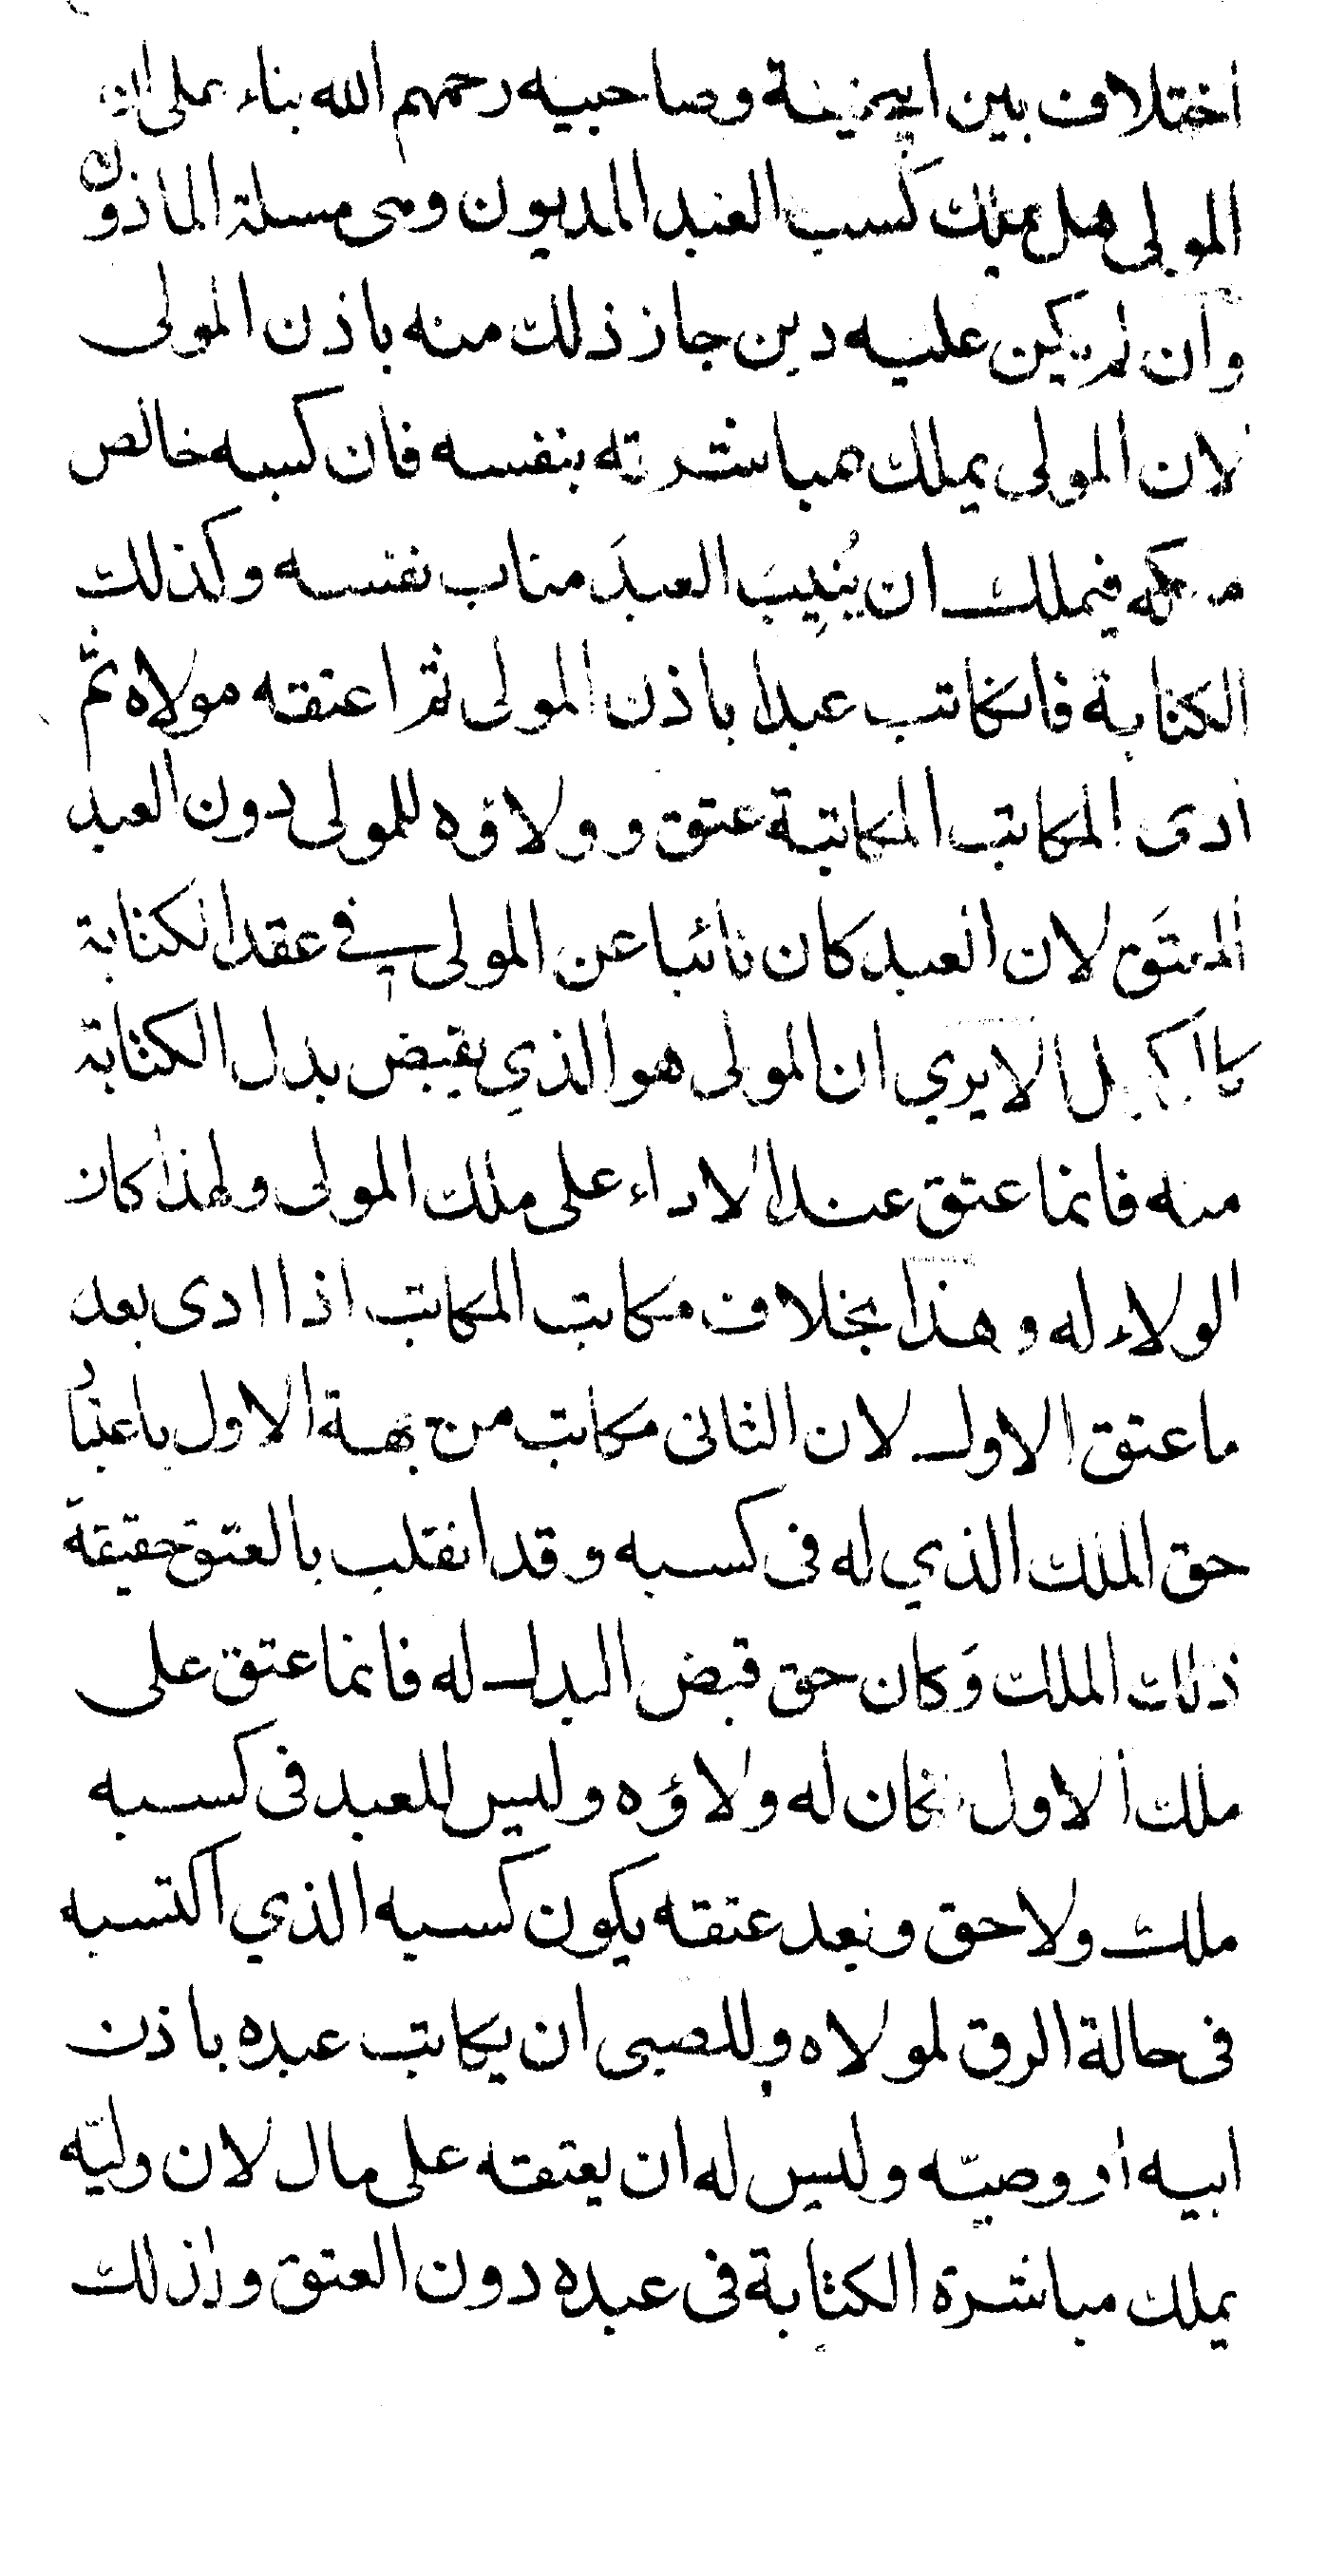 اختلاف بين ابيحنيفة وصاحبيه رحمهم الله بناء على ان
المولى هل يملك كسب العبد المديون وهى مسلة الماذون
وان لم يكن عليه دين جاز ذلك منه باذن المولى
لان المولى يملك مباشرته بنفسه فان كسبه خالص
ملكه فيملك ان يُنِيبَ العبدَ مناب نفسه وكذلك
الكتابة فان كاتب عبدا باذن المولى ثم اعتقه مولاه ثم
ادى المكاتب المكاتبة عتق وولاؤه للمولى دون العبد
المعتَق لان العبد كان نائبا عن المولى في عقد الكتابة
كالوكيل الا يري ان المولى هو الذي يقبض بدل الكتابة
منه فانما عتق عند الاداء على ملك المولى ولهذا كان
الولاء له وهذا بخلاف مكاتب المكاتب اذا ادى بعد
ما عتق الاول لان الثانى مكاتب من جهة الاول باعتبار
حق الملك الذي له فى كسبه وقد انقلب بالعتق حقيقة
ذلك الملك وَكان حق قبض البدل له فانما عتق على
ملك الاول فكان له ولاؤه وليس للعبد فى كسبه
ملك ولا حق وبعد عتقه يكون كسبه الذي اكتسبه
فى حالة الرق لمولاه وللصبى ان يكاتب عبده باذن
ابيه او وصيّه وليس له ان يعتقه على مال لان وليّه
يملك مباشرة الكتابة فى عبده دون العتق وان ذلك